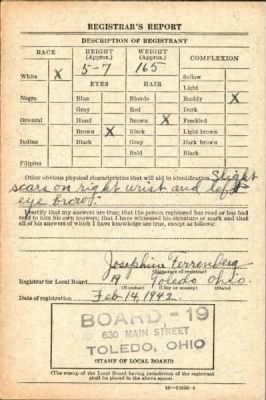 REGISTRAR'S REPORT
DESCRIPTION OF REGISTRANT
RACE HEIGHT (Approx.) WEIGHT (Approx.) COMPLEXION
White X 5-7 165 Sallow
EYES HAIR Light
Negro Blue Blonde Ruddy X
Gray Red Dark
Oriental Hazel Brown X Freckled
Brown X Black Light brown
Indian Black Gray Dark brown
Bald Black
Filipino
Other obvious physical characteristics that will aid in identification Slight
scars on right wrist and left
eye brow.
I certify that my answers are true; that the person registered has read or has had
read to him his own answers; that I have witnessed his signature or mark and that
all of his answers of which I have knowledge are true, except as follows:
Josephine Ferrenberg
(Signature of registrar)
Registrar for Local Board 19 Toledo Ohio
(Number) (City or county) (State)
Date of registration Feb. 14, 1942.
BOARD - 19
630 MAIN STREET
TOLEDO, OHIO
(STAMP OF LOCAL BOARD)
(The stamp of the Local Board having jurisdiction of the registrant
shall be placed in the above space)